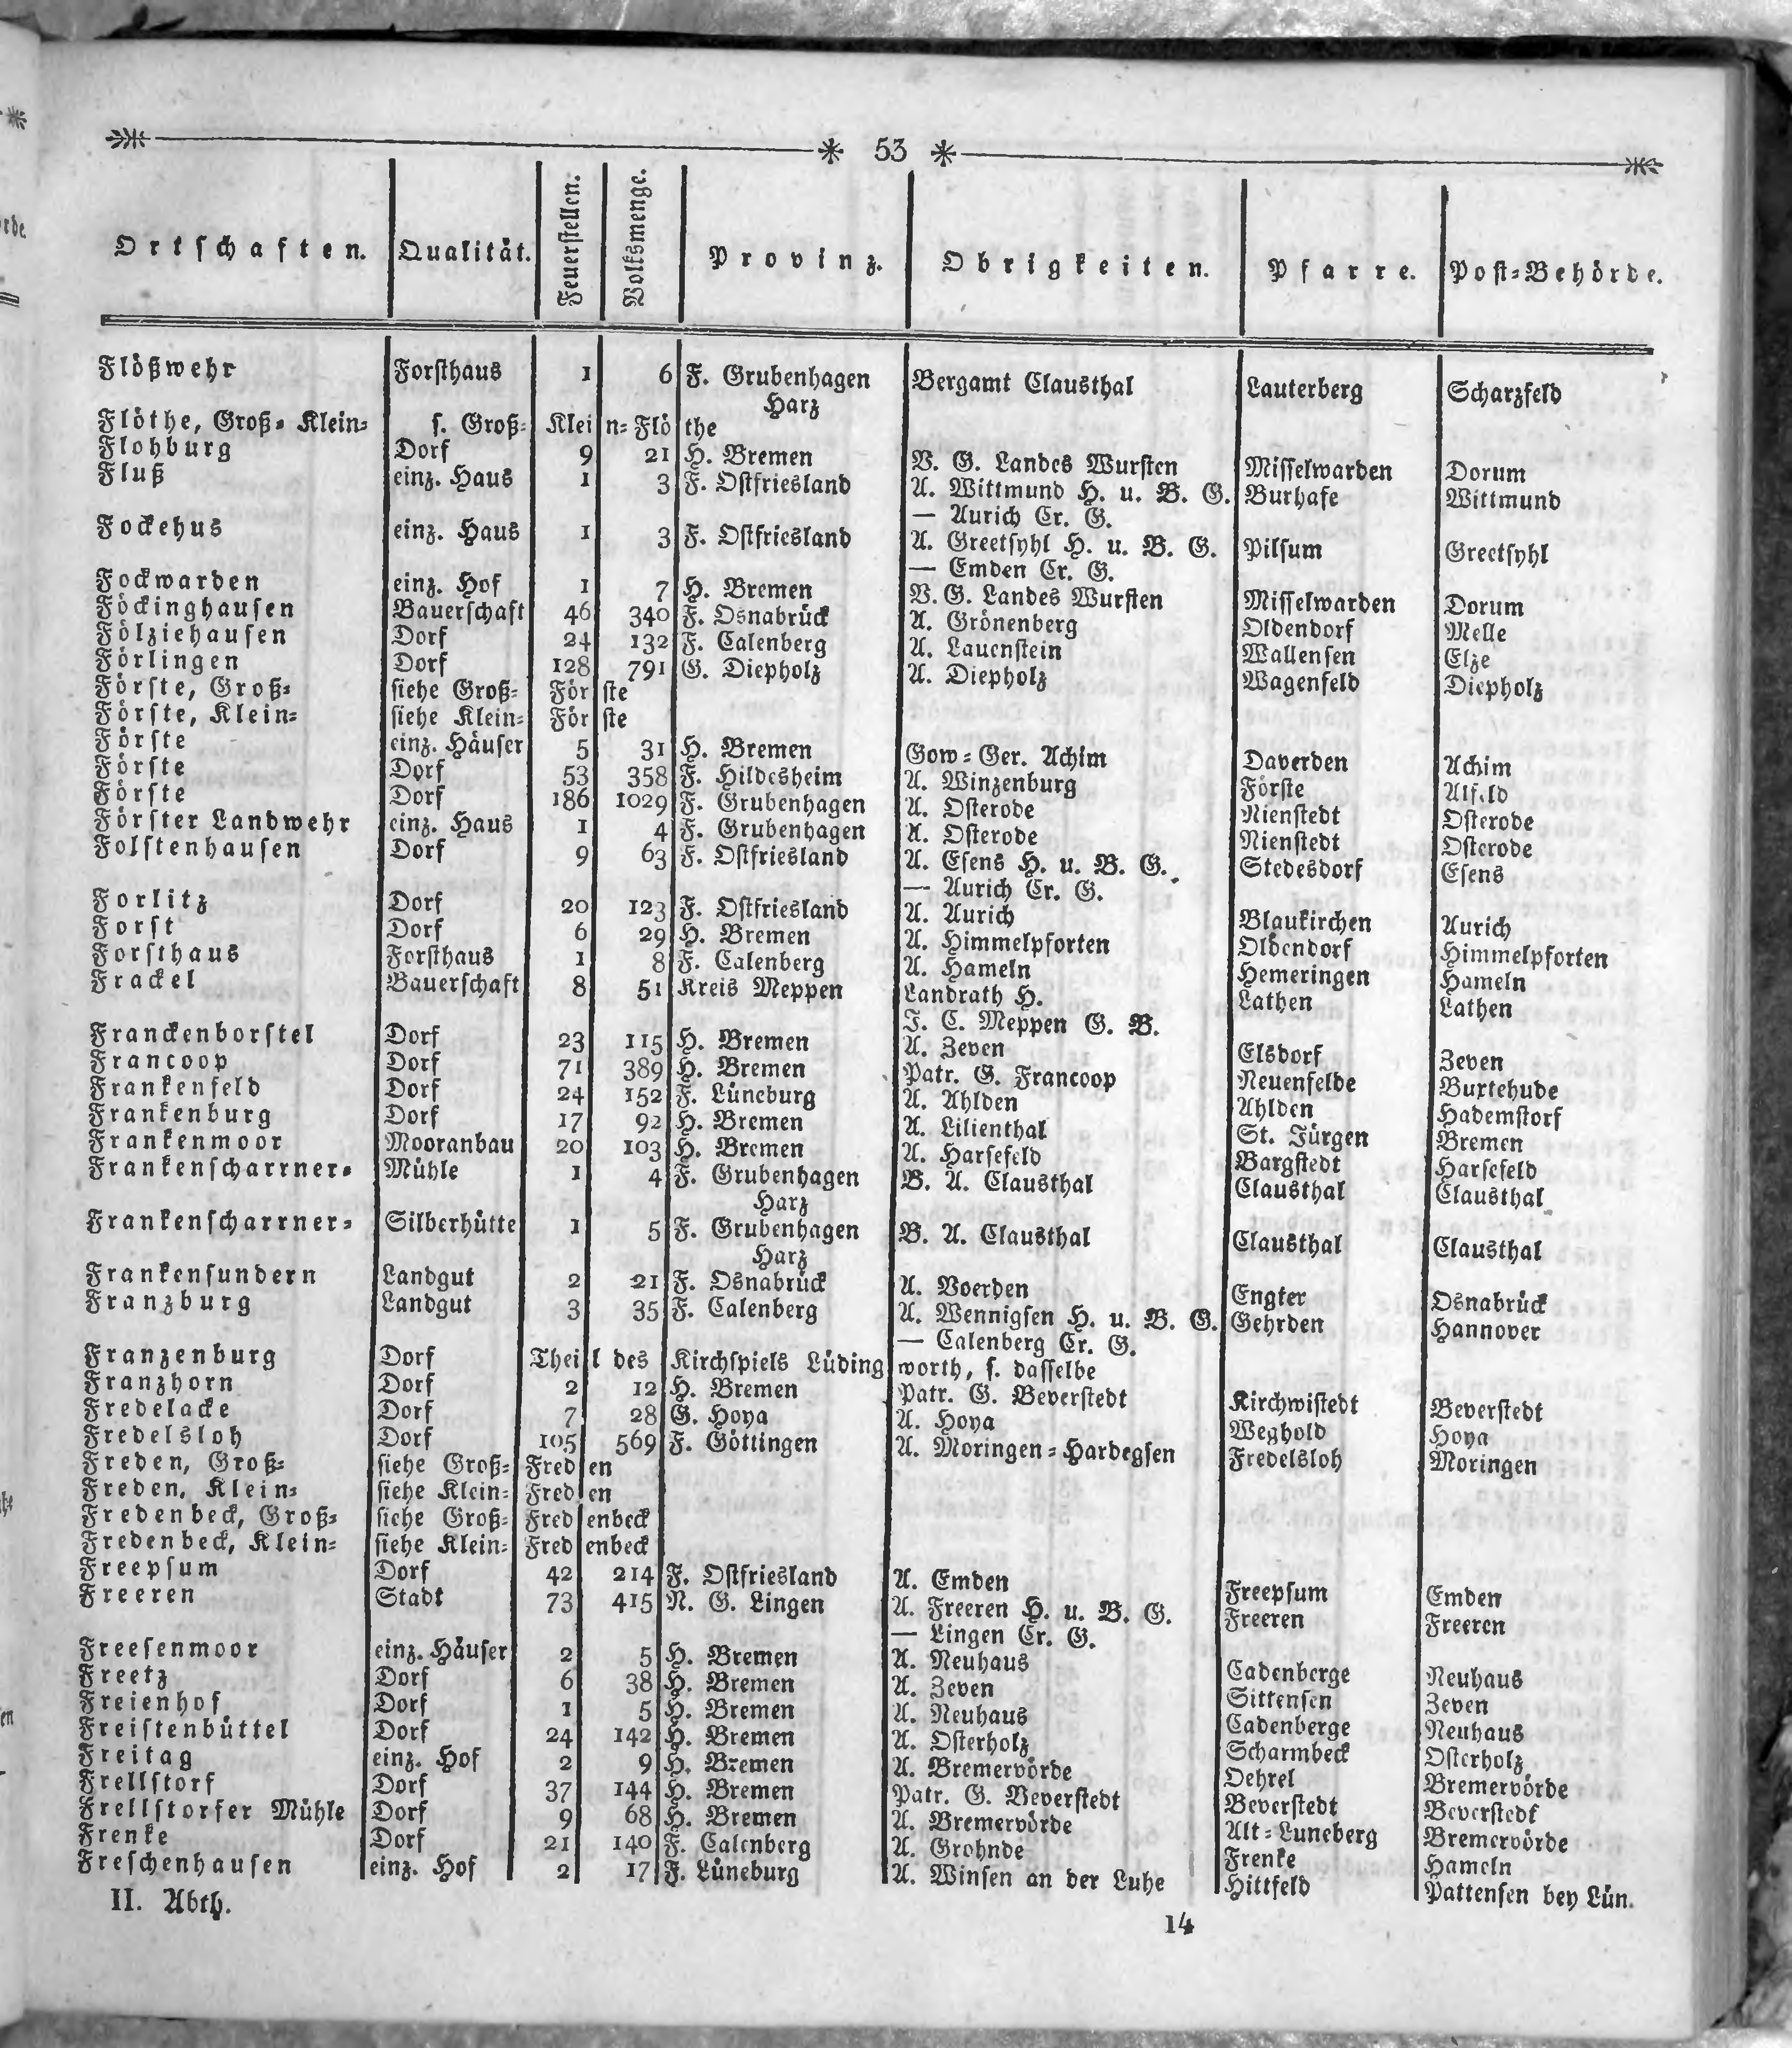 53
Ortschaften. Qualität. Feuerstellen. Volksmenge. Provinz. Obrigkeiten. Pfarre. Post=Behörde.
Flößwehr Forsthaus 1 6 F. Grubenhagen Bergamt Clausthal Lauterberg Scharzfeld
Harz
Flöthe, Groß= Klein= s. Groß= Klein=Flöthe
Flohburg Dorf 9 21 H. Bremen V. G. Landes Wursten Misselwarden Dorum
Fluß einz. Haus 1 3 F. Ostfriesland A. Wittmund H. u. B. G. Burhafe Wittmund
— Aurich Cr. G.
Fockehus einz. Haus 1 3 F. Ostfriesland A. Greetsyhl H. u. B. G. Pilsum Greetsyhl
— Emden Cr. G.
Fockwarden einz. Hof 1 7 H. Bremen V. G. Landes Wursten Misselwarden Dorum
Föckinghausen Bauerschaft 46 340 F. Osnabrück A. Grönenberg Oldendorf Melle
Fölziehausen Dorf 24 132 F. Calenberg A. Lauenstein Wallensen Elze
Förlingen Dorf 128 791 G. Diepholz A. Diepholz Wagenfeld Diepholz
Förste, Groß= siehe Groß= Förste
Förste, Klein= siehe Klein= Förste
Förste einz. Häuser 5 31 H. Bremen Gow=Ger. Achim Daverden Achim
Förste Dorf 53 358 F. Hildesheim A. Winzenburg Förste Alfeld
Förste Dorf 186 1029 F. Grubenhagen A. Osterode Nienstedt Osterode
Förster Landwehr einz. Haus 1 4 F. Grubenhagen A. Osterode Nienstedt Osterode
Folstenhausen Dorf 9 63 F. Ostfriesland A. Esens H. u. B. G. Stedesdorf Esens
— Aurich Cr. G.
Forlitz Dorf 20 123 F. Ostfriesland A. Aurich Blaukirchen Aurich
Forst Dorf 6 29 H. Bremen A. Himmelpforten Oldendorf Himmelpforten
Forsthaus Forsthaus 1 8 F. Calenberg A. Hameln Hemeringen Hameln
Frackel Bauerschaft 8 51 Kreis Meppen Landrath H. Lathen Lathen
J. C. Meppen G. B.
Franckenborstel Dorf 23 115 H. Bremen A. Zeven Elsdorf Zeven
Francoop Dorf 71 389 H. Bremen Patr. G. Francoop Neuenfelde Buxtehude
Frankenfeld Dorf 24 152 F. Lüneburg A. Ahlden Ahlden Hademstorf
Frankenburg Dorf 17 92 H. Bremen A. Lilienthal St. Jürgen Bremen
Frankenmoor Mooranbau 20 103 H. Bremen A. Harsefeld Bargstedt Harsefeld
Frankenscharrner= Mühle 1 4 F. Grubenhagen B. A. Clausthal Clausthal Clausthal
Harz
Frankenscharrner= Silberhütte 1 5 F. Grubenhagen B. A. Clausthal Clausthal Clausthal
Harz
Frankensundern Landgut 2 21 F. Osnabrück A. Voerden Engter Osnabrück
Franzburg Landgut 3 35 F. Calenberg A. Wennigsen H. u. B. G. Gehrden Hannover
— Calenberg Cr. G.
Franzenburg Dorf Theil des Kirchspiels Lüdingworth, s. dasselbe
Franzhorn Dorf 2 12 H. Bremen Patr. G. Beverstedt Kirchwistedt Beverstedt
Fredelacke Dorf 7 28 G. Hoya A. Hoya Weghold Hoya
Fredelsloh Dorf 105 569 F. Göttingen A. Moringen=Hardegsen Fredelsloh Moringen
Freden, Groß= siehe Groß= Freden
Freden, Klein= siehe Klein= Freden
Fredenbeck, Groß= siehe Groß= Fredenbeck
Fredenbeck, Klein= siehe Klein= Fredenbeck
Freepsum Dorf 42 214 F. Ostfriesland A. Emden Freepsum Emden
Freeren Stadt 73 415 N. G. Lingen A. Freeren H. u. B. G. Freeren Freeren
— Lingen Cr. G.
Freesenmoor einz. Häuser 2 5 H. Bremen A. Neuhaus Cadenberge Neuhaus
Freetz Dorf 6 38 H. Bremen A. Zeven Sittensen Zeven
Freienhof Dorf 1 5 H. Bremen A. Neuhaus Cadenberge Neuhaus
Freistenbüttel Dorf 24 142 H. Bremen A. Osterholz Scharmbeck Osterholz
Freitag einz. Hof 2 9 H. Bremen A. Bremervörde Oehrel Bremervörde
Frellstorf Dorf 37 144 H. Bremen Patr. G. Beverstedt Beverstedt Beverstedt
Frellstorfer Mühle Dorf 9 68 H. Bremen A. Bremervörde Alt=Luneberg Bremervörde
Frenke Dorf 21 140 F. Calenberg A. Grohnde Frenke Hameln
Freschenhausen einz. Hof 2 17 F. Lüneburg A. Winsen an der Luhe Hittfeld Pattensen bey Lün.
II. Abth.
14